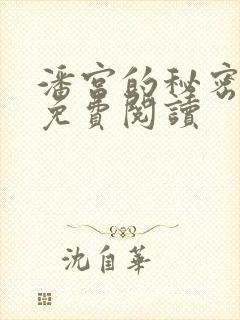 潘宮的秘密
免費閱讀
沈自華